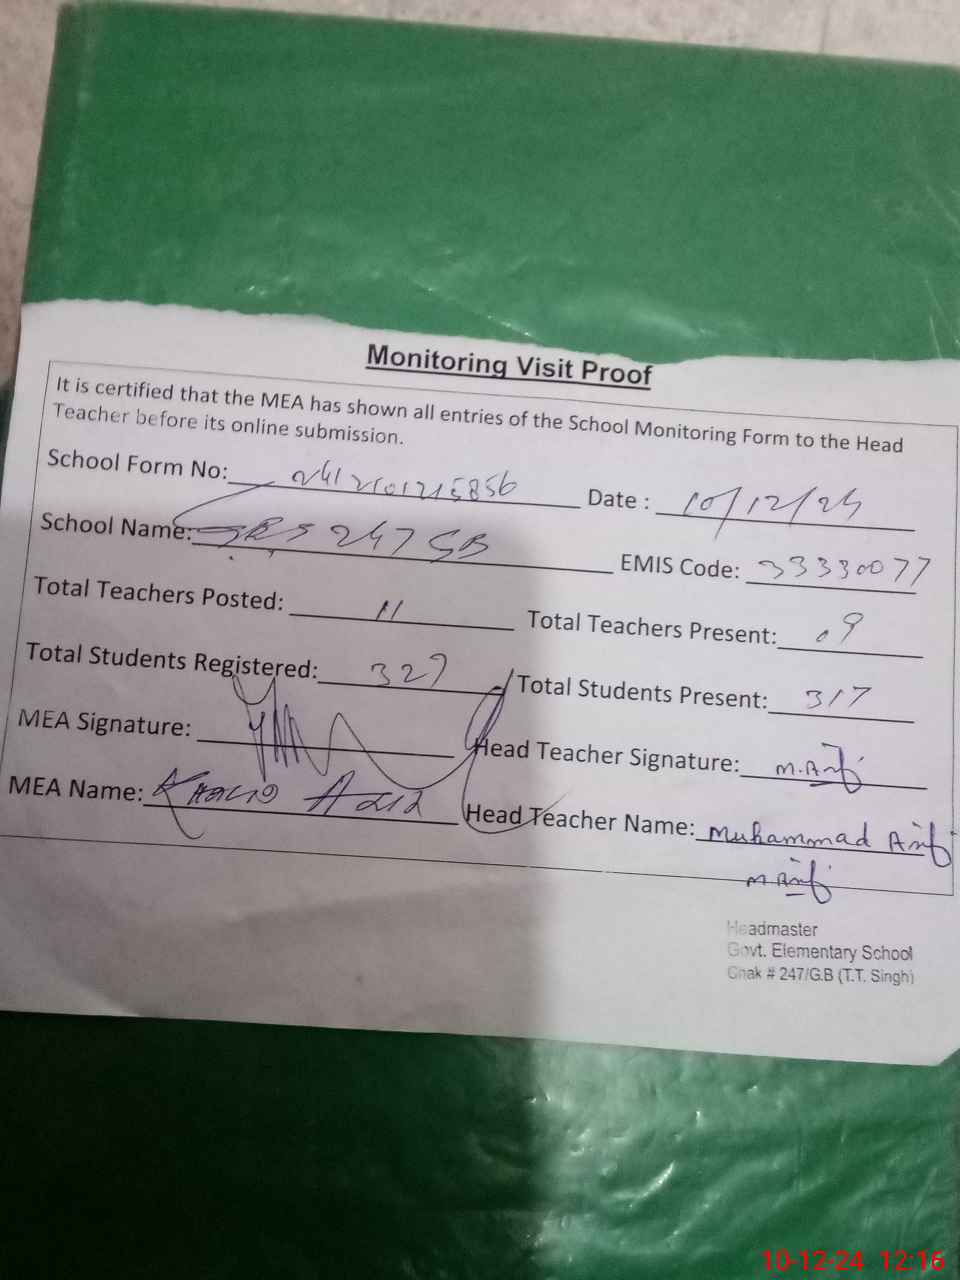 Monitoring Visit Proof
It is certified that the MEA has shown all entries of the School Monitoring Form to the Head
Teacher before its online submission.
School Form No: Date : 10/12/24
School Name: 247 GB EMIS Code: 33330077
Total Teachers Posted: 11 Total Teachers Present: 09
Total Students Registered: 327 Total Students Present: 317
MEA Signature: Head Teacher Signature: M. Arif
MEA Name: Khalid Aziz Head Teacher Name: Muhammad Arif
M. Arif
Headmaster
Govt. Elementary School
Chak # 247/G.B (T.T. Singh)
10-12-24 12:16